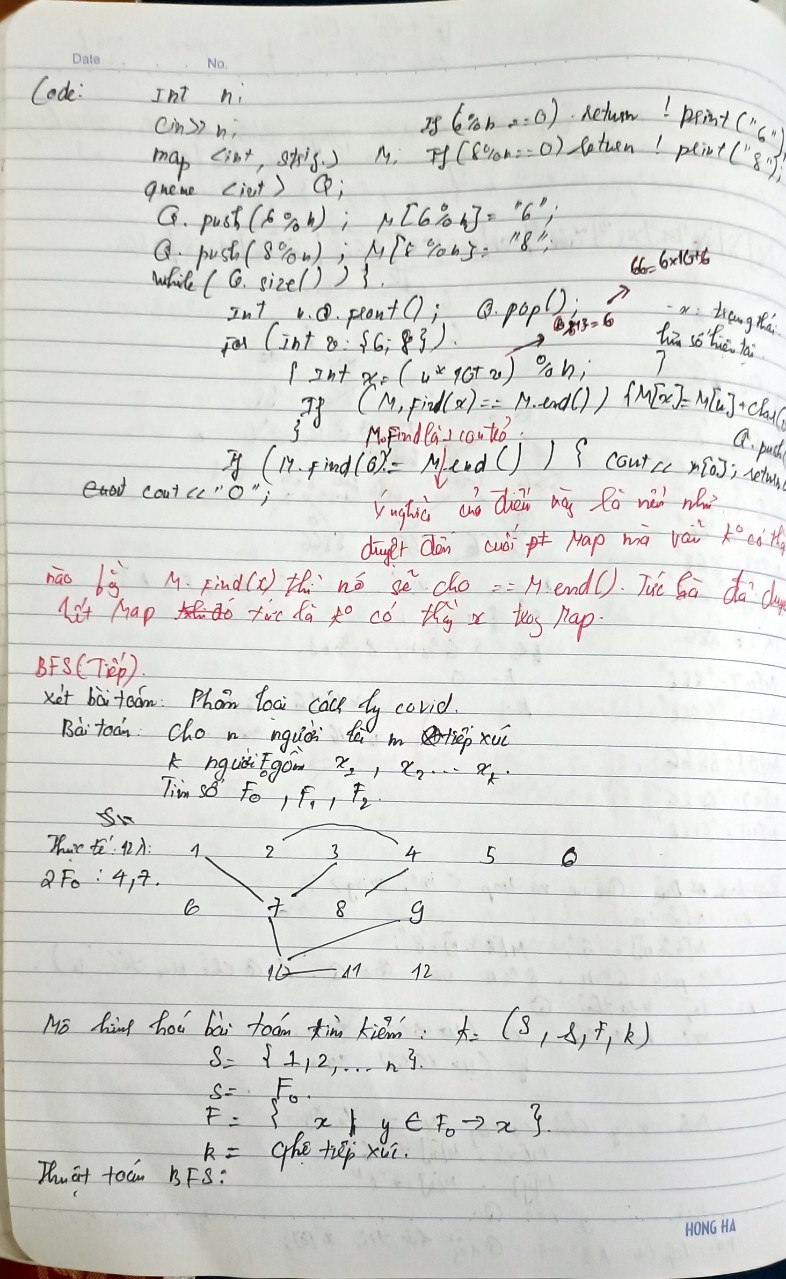 Date No.
Code: Int n;
Cin>> n; If (6%n ==0) return ! print("6");
map <int, strig.) M, If (8%n==0) return ! print("8");
queue <int> Q;
Q. push(6%n) ; M[6%n]= "6";
Q. push(8%n) ; M[8%n]= "8";
while ( Q. size() ) {.
66=6x10+6
Int u.Q.front(); Q.pop();
- x: trạng thái
for (Int v: {6; 8}).
hữu số hiện tại
{ Int x=(u*10+v) %n; }
If (M.find(x)== M.end()) {M[x]=M[u]+char(
} M.Find là 1 con trỏ. Q.push(
If (M.find(0)!= M.end()) { cout<< M[0]; return
cout<<"0";
Ý nghĩa của điều này là nếu như
duyệt đến cuối pt Map mà vẫn ko có th
nào bằng M.find(x) thì nó sẽ cho == M.end(). Tức là đã duy
hết Map tức là ko có thằng x trong Map.
BFS(Tiếp).
Xét bài toán: Phân loại cách ly covid.
Bài toán: Cho n người là m tiếp xúc
k người F0 gồm x1, x2 ... xk.
Tìm số F0, F1, F2.
Thực tế: 12 1 2 3 4 5 6
2F0 : 4,7.
6 7 8 9
10 11 12
Mô hình hoá bài toán tìm kiếm: t= (S, s, F, k)
S= {1,2,... n}.
s= F0.
F= { x | y ∈ F0 → x }.
k= Ghé tiếp xúc.
Thuật toán BFS:
HONG HA